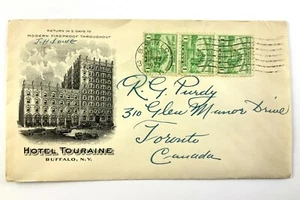 RETURN IN 5 DAYS TO
MODERN FIREPROOF THROUGHOUT
HOTEL TOURAINE
BUFFALO, N.Y.
R. G. Purdy
310 Glen Manor Drive
Toronto
Canada